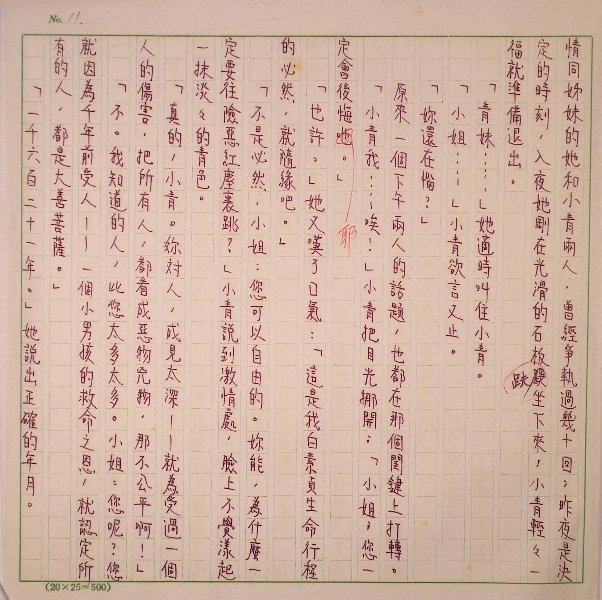 No. 11.
情同姊妹的她和小青兩人，曾經爭執過幾十回；昨夜是決
定的時刻，入夜她剛在光滑的石板躞坐下來，小青輕々一
趺
福就準備退出。
「青妹……」她適時叫住小青。
「小姐……」小青欲言又止。
「妳還在惱？」
原來一個下午兩人的話題，也都在那個關鍵上打轉。
「小青我……唉！」小青把目光挪開：「小姐；您一
定會後悔吔。」
耶
「也許。」她又嘆了口氣：「這是我白素貞生命行程
的必然，就隨緣吧。」
「不是必然，小姐：您可以自由的。妳能，為什麼一
定要往險惡紅塵裏跳？」小青說到激情處，臉上不覺漾起
一抹淡々的青色。
「真的，小青。妳对人，成見太深——就為受過一個
人的傷害，把所有人，都看成惡物兇物，那不公平啊！」
「不。我知道的人，比您太多太多。小姐：您呢？您
就因為千年前受人——一個小男孩的救命之恩，就認定所
有的人，都是大善菩薩。」
「一千六百二十一年。」她說出正確的年月。
(20×25=500)